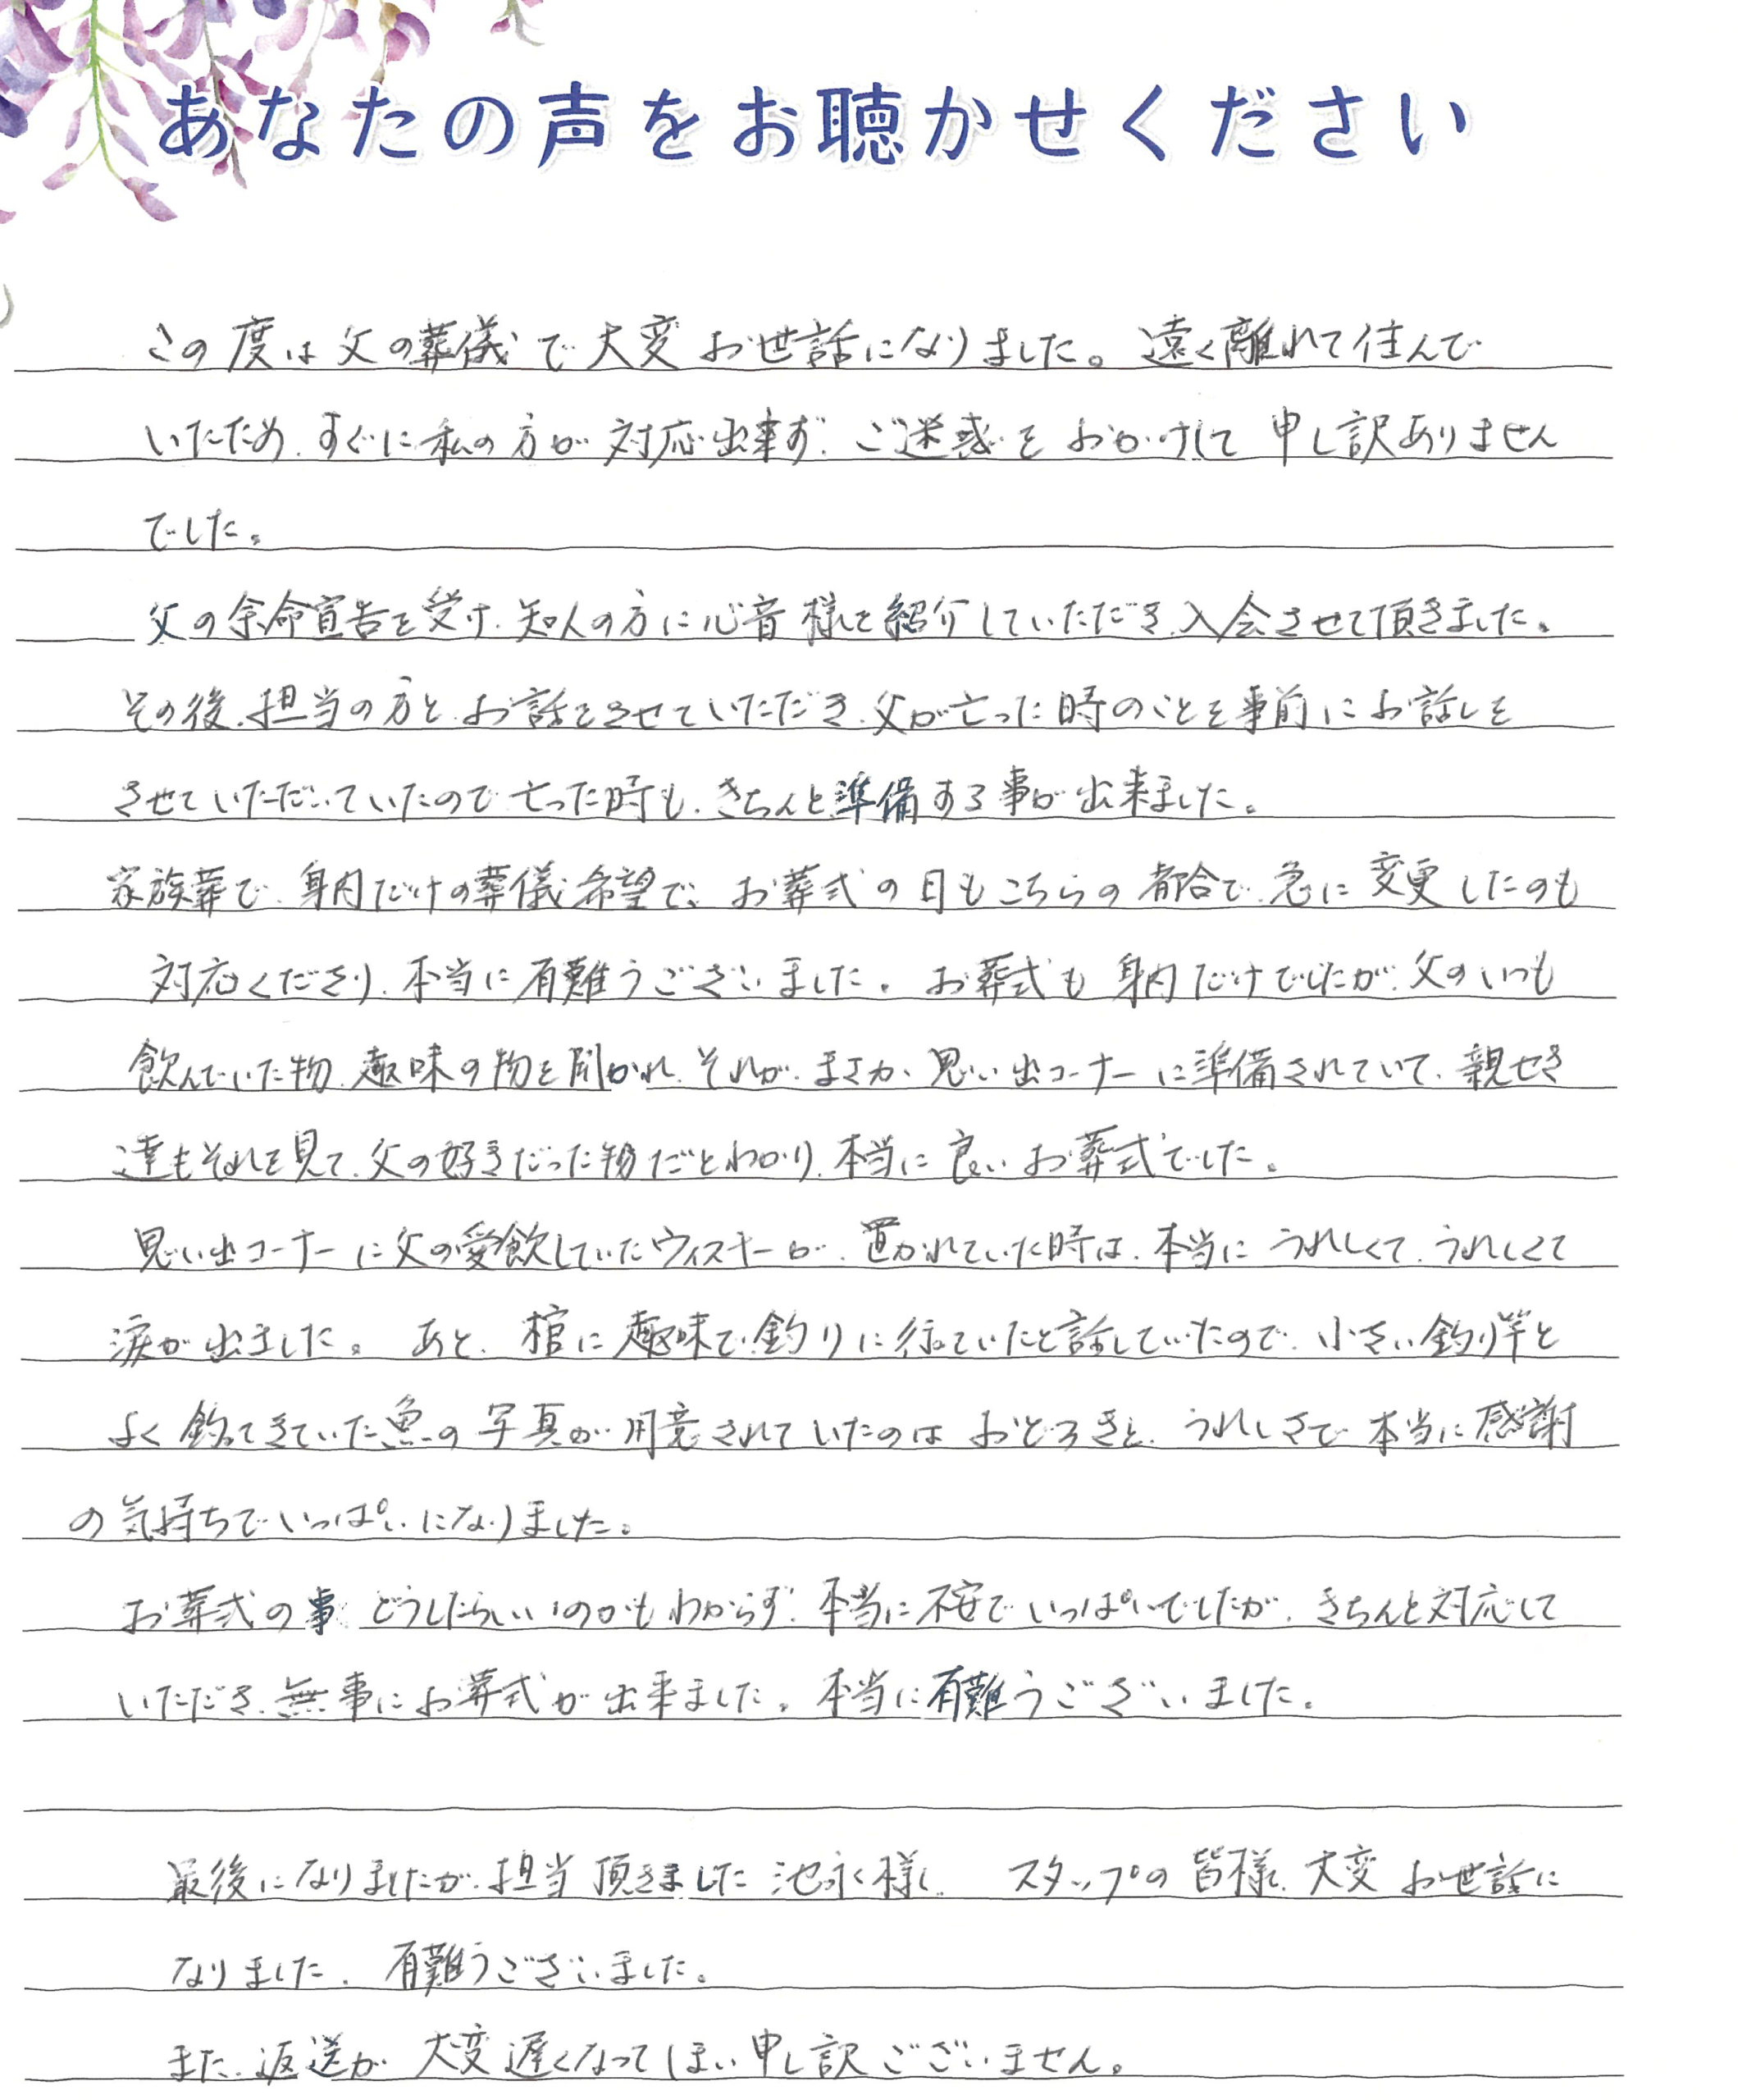 あなたの声をお聴かせください
この度は父の葬儀で大変お世話になりました。遠く離れて住んで
いたため、すぐに私の方が対応出来ず、ご迷惑をおかけして申し訳ありません
でした。
父の余命宣告を受け、知人の方に心音様を紹介していただき、入会させて頂きました。
その後、担当の方と、お話をさせていただき、父が亡った時のことを事前にお話しを
させていただいていたので亡った時も、きちんと準備する事が出来ました。
家族葬で、身内だけの葬儀希望で、お葬式の日もこちらの都合で、急に変更したのも
対応くださり、本当に有難うございました。お葬式も身内だけでしたが、父のいつも
飲んでいた物、趣味の物を聞かれ、それが、まさか、思い出コーナーに準備されていて、親せき
達もそれを見て、父の好きだった物だとわかり、本当に良いお葬式でした。
思い出コーナーに父の愛飲していたウィスキーが、置かれていた時は、本当にうれしくて、うれしくて
涙が出ました。あと、棺に趣味で釣りに行っていたと話していたので、小さい釣り竿と
よく釣ってきていた魚の写真が用意されていたのはおどろきと、うれしさで本当に感謝
の気持ちでいっぱいになりました。
お葬式の事、どうしたらいいのかもわからず、本当に不安でいっぱいでしたが、きちんと対応して
いただき、無事にお葬式が出来ました。本当に有難うございました。
最後になりましたが、担当頂きました池永様、スタップの皆様、大変お世話に
なりました、有難うございました。
また、返送が大変遅くなってしまい申し訳ございません。